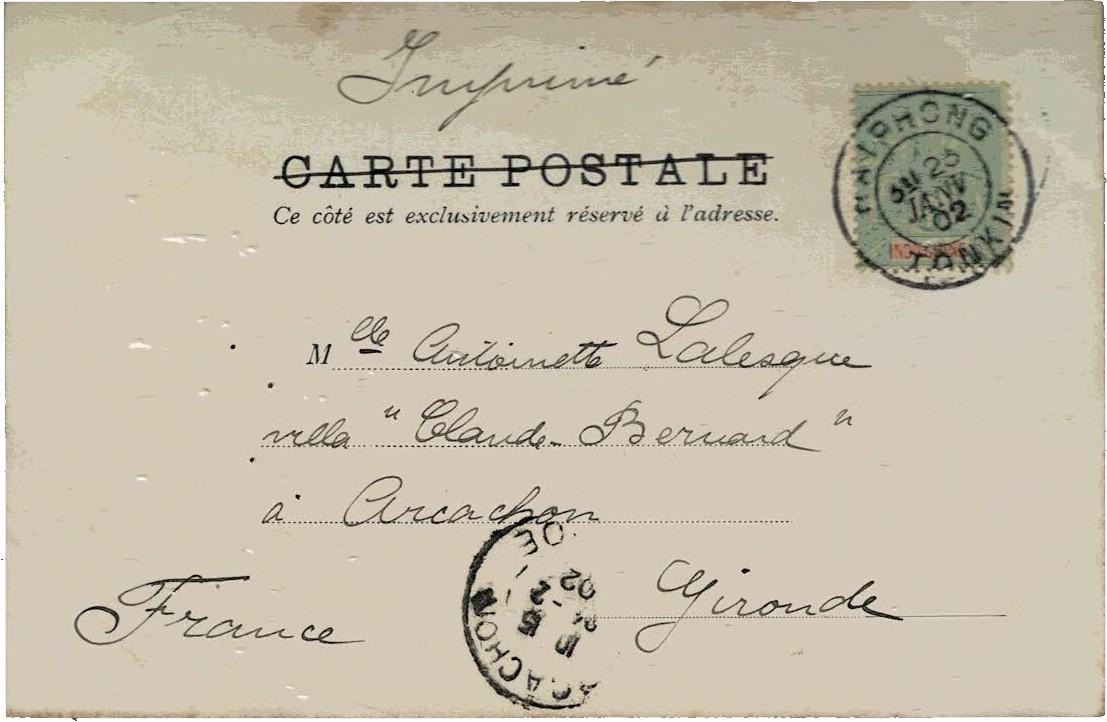 Imprimé
CARTE POSTALE
Ce côté est exclusivement réservé à l'adresse.
HAIPHONG
25
JANV
02
TONKIN
INDO-CHINE
Mlle Antoinette Lalesque
villa "Claude-Bernard"
à Arcachon
Gironde
France
ARCACHON
02